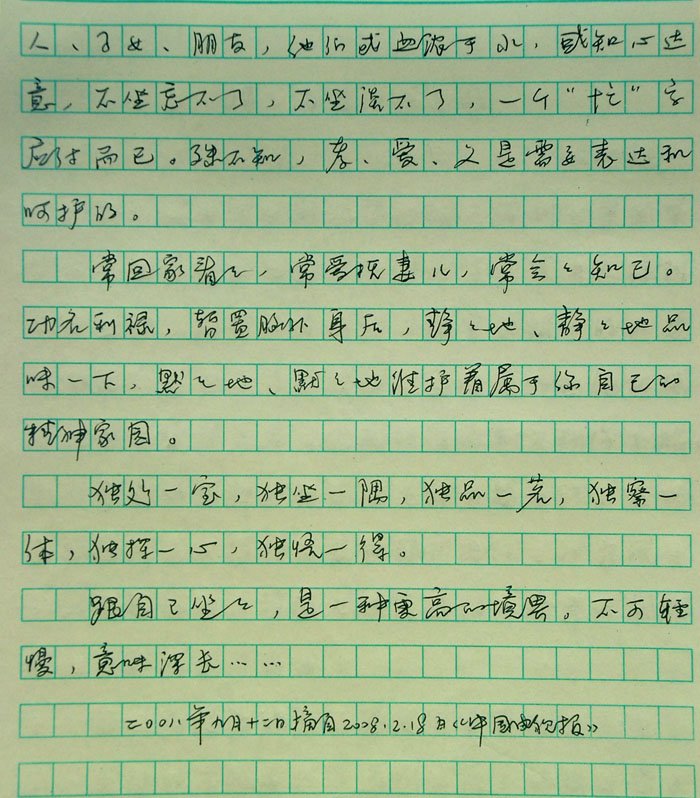 人、子女、朋友，他们或血浓于水，或知心达
意，不坐忘不了，不坐淡不了，一个“忙”字
应付而已。殊不知，孝、爱、义是需要表达和
呵护的。
常回家看々，常爱抚妻儿，常会々知己。
功名利禄，暂置脑外身后，静々地、静々地品
味一下，默々地、默々地维护着属于你自己的
精神家园。
独处一室，独坐一隅，独品一茗，独察一
体，独探一心，独悟一得。
跟自己坐々，是一种更高的境界。不可轻
慢，意味深长……
年九月十二日摘自2008.2.18日《中国电视报》